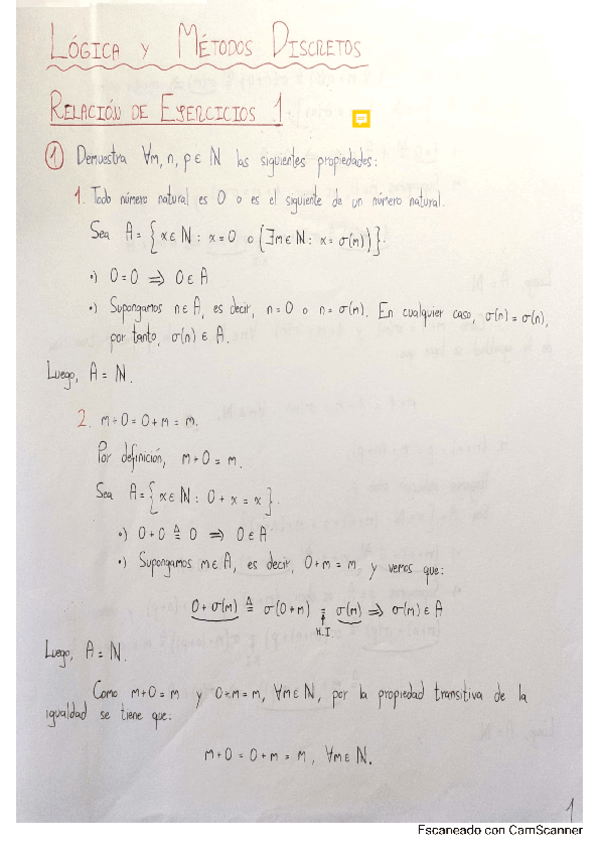 LÓGICA Y MÉTODOS DISCRETOS
RELACIÓN DE EJERCICIOS 1
① Demuestra ∀m, n, p ∈ ℕ las siguientes propiedades:
1. Todo número natural es 0 o es el siguiente de un número natural.
Sea A = {x ∈ ℕ : x = 0 o (∃m ∈ ℕ : x = σ(m))}.
•) 0 = 0 ⇒ 0 ∈ A
•) Supongamos n ∈ A, es decir, n = 0 o n = σ(m). En cualquier caso, σ(n) = σ(n),
por tanto, σ(n) ∈ A.
Luego, A = ℕ.
2. m + 0 = 0 + m = m.
Por definición, m + 0 = m.
Sea A = {x ∈ ℕ : 0 + x = x}.
•) 0 + 0 ≜ 0 ⇒ 0 ∈ A
•) Supongamos m ∈ A, es decir, 0 + m = m, y vemos que:
0 + σ(m) ≜ σ(0 + m) = σ(m) ⇒ σ(m) ∈ A
H.I.
Luego, A = ℕ.
Como m + 0 = m y 0 + m = m, ∀m ∈ ℕ, por la propiedad transitiva de la
igualdad se tiene que:
m + 0 = 0 + m = m, ∀m ∈ ℕ.
1
Escaneado con CamScanner